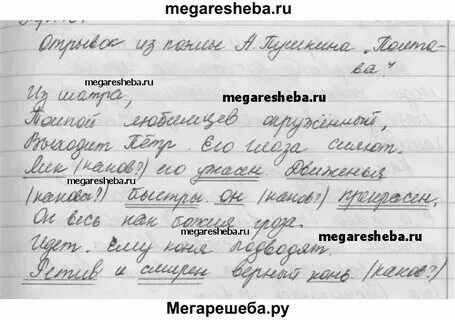 Мегарешеба.ру
Отрывок из поэмы А. Пушкина „Полта-
ва“
megaresheba.ru
megaresheba.ru
Из шатра,
megaresheba.ru
Толпой любимцев окружённый,
Выходит Пётр. Его глаза сияют.
megaresheba.ru
Лик (каков?) его ужасен. Движенья
megaresheba.ru
(каковы?) быстры. Он (каков?) прекрасен,
Он весь как божия гроза.
megaresheba.ru
Идёт. Ему коня подводят.
megaresheba.ru
Ретив и смирен верный конь (каков?)
Мегарешеба.ру